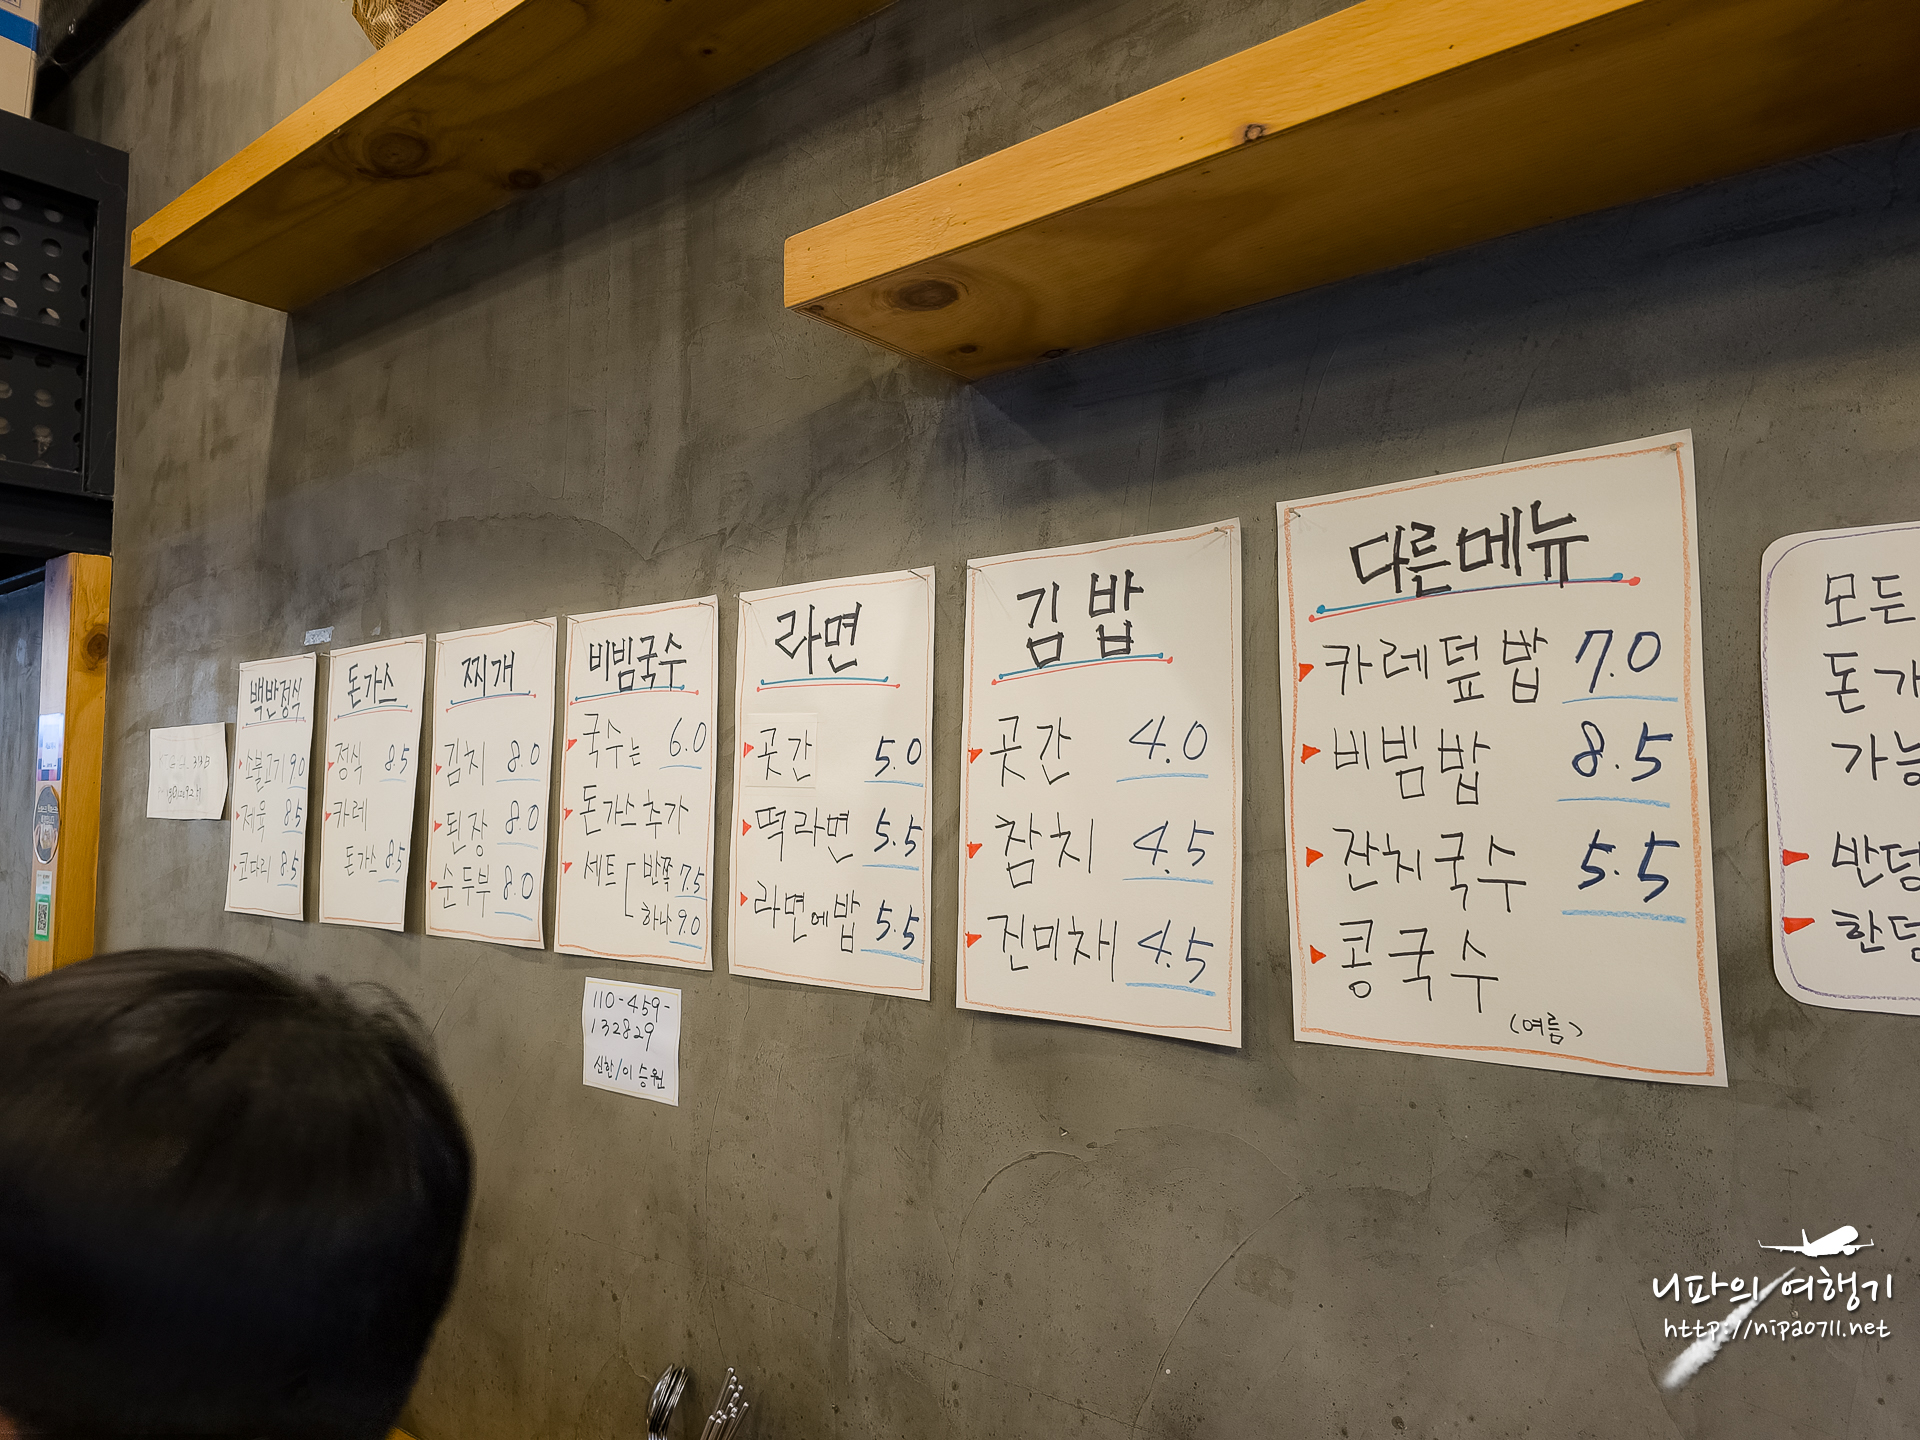 백반정식
소불고기 9.0
제육 8.5
코다리 8.5
돈가스
정식 8.5
카레
돈가스 8.5
찌개
김치 8.0
된장 8.0
순두부 8.0
비빔국수
국수는 6.0
돈가스추가
세트 [ 반쪽 7.5
하나 9.0
110-459-
132829
신한/이승원
라면
곳간 5.0
떡라면 5.5
라면에밥 5.5
김밥
곳간 4.0
참치 4.5
진미채 4.5
다른메뉴
카레덮밥 7.0
비빔밥 8.5
잔치국수 5.5
콩국수
(여름)
모든
돈가
가능
반덩
한덩
니파의 여행기
http://nipa0711.net